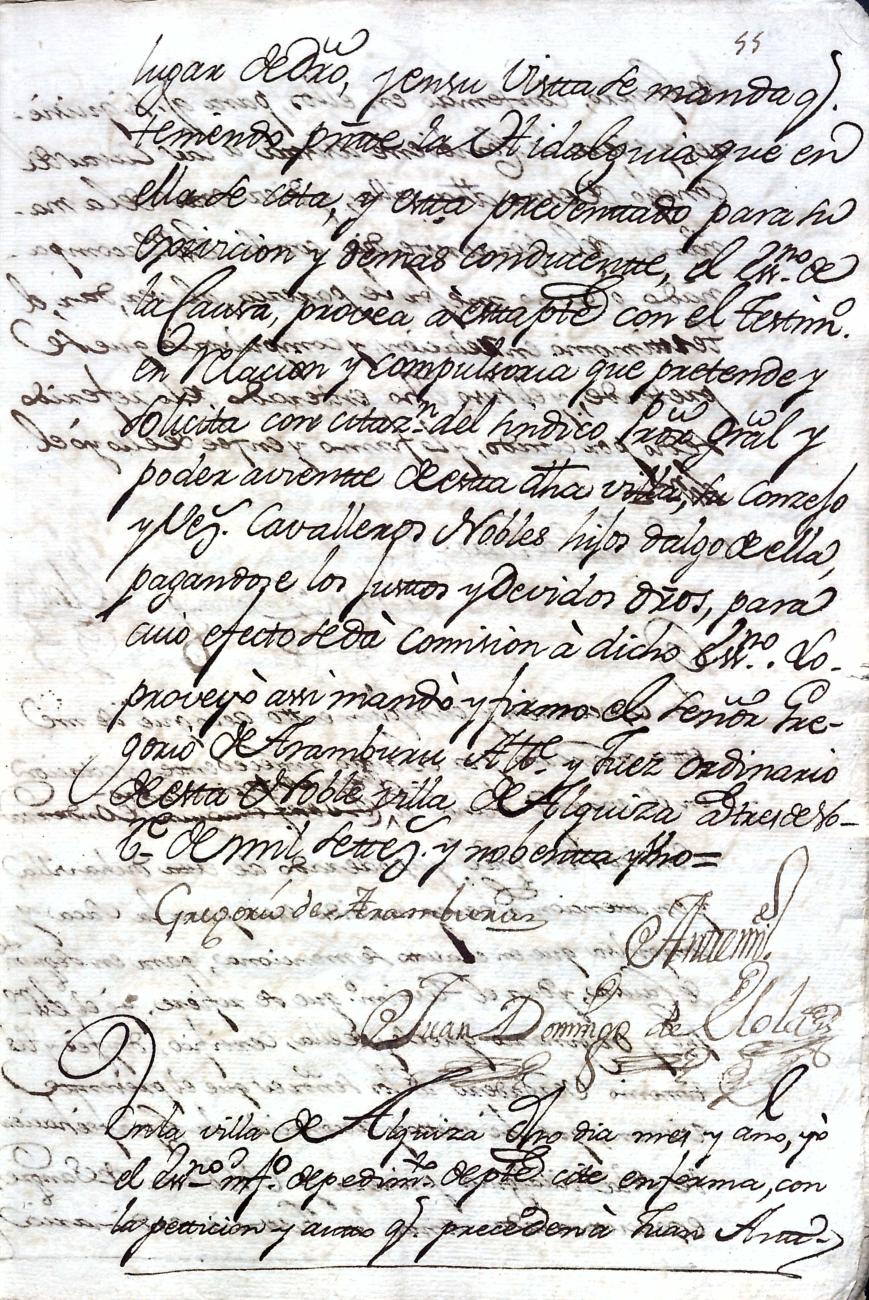 55
lugar de dro, y en su Vistta se manda q.
teniendo pntte la Hidalguia que en
ella se cita, y estta presenttado para su
oposicion y demas conducentte, el Essno. de
la Causa, provea à estta ptte con el Testimo.
en relacion y compulsoria que pretende y
solicita con citazn. del sindico Pror Gral y
poder avientte de estta dha villa, su Conzejo
y Vezs. Cavalleros Nobles hijos dalgo de ella,
pagandose los Justtos y Devidos dros, para
cuio efecto se dà comision à dicho Essno. Lo
proveyò assi mandò y firmo el Señor Gre-
gorio de Aramburu Altte. y Juez ordinario
de estta Noble villa de Alquiza à tres de
bre. de mil settezs. y nobentta y
Gregorio de Aramburu
Antemi.
Juan Domingo de
En la villa de Alquiza dho dia mes y año, yo
el Essno. de pedimto. de ptte citè en forma, con
la petticion y autto q. preceden à Juan Antto.